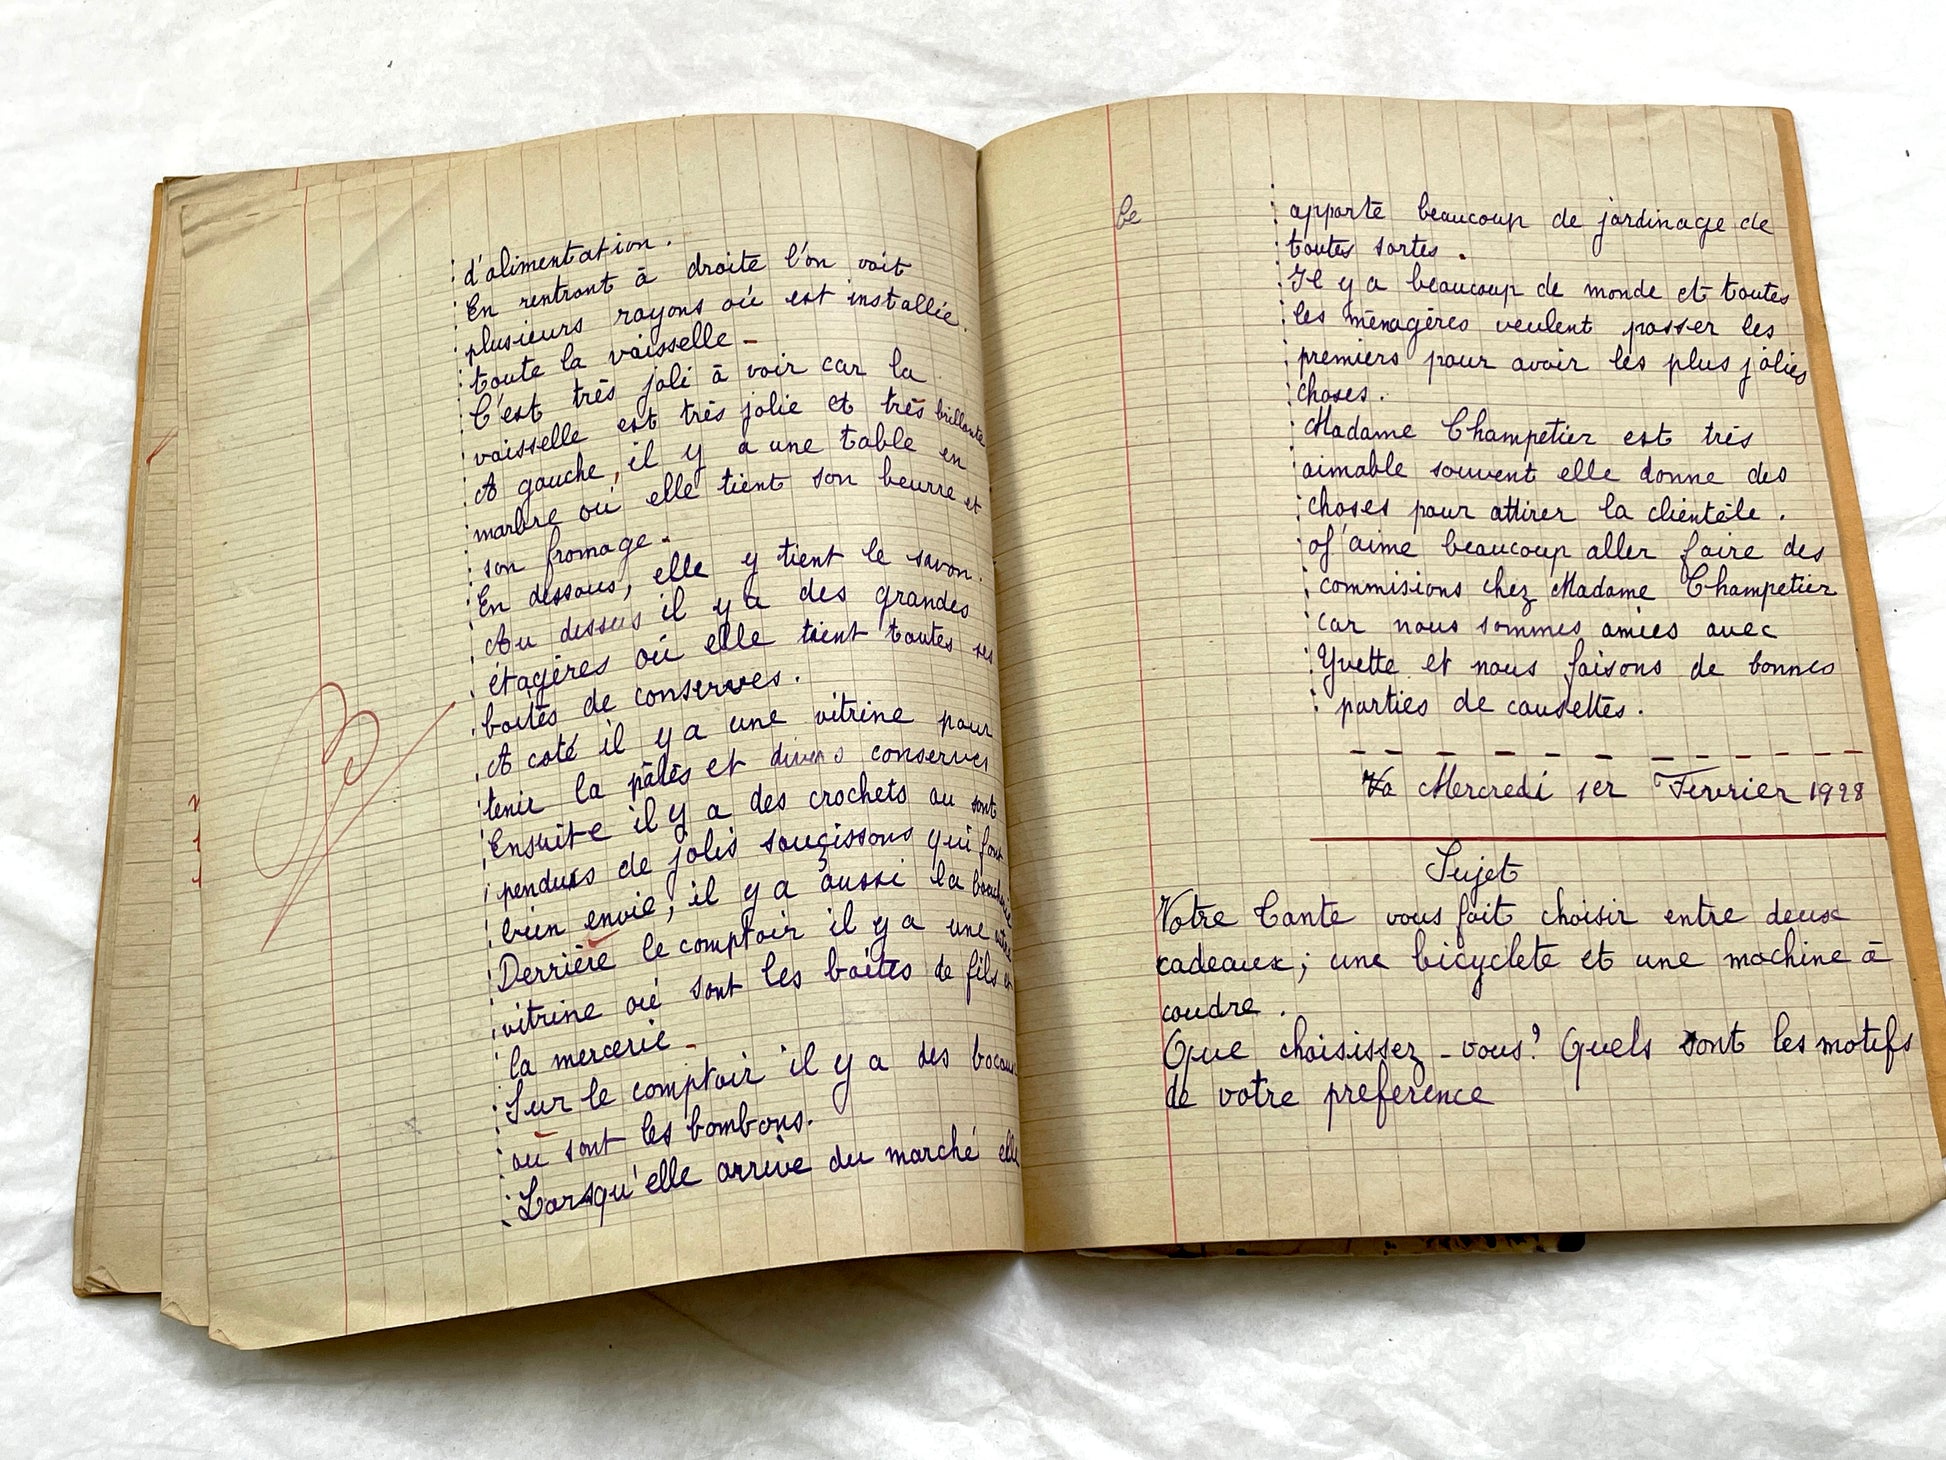 d'alimentation.
En rentront à droite l'on voit
plusieurs rayons où est installée.
toute la vaisselle -
C'est très joli à voir car la
vaisselle est très jolie et très brillante
A gauche, il y a une table en
marbre où elle tient son beurre et
son fromage.
En dessous, elle y tient le savon.
Au dessus il y a des grandes
étagères où elle tient toutes ses
boîtes de conserves.
A coté il y a une vitrine pour
tenir la pâtés et divers conserves
Ensuite il y a des crochets ou sont
pendues de jolis saucissons qui font
bien envie, il y a aussi la
Derrière le comptoir il y a une
vitrine où sont les boîtes de fils et
la mercerie -
Sur le comptoir il y a des bocaux
où sont les bombons.
Lorsqu'elle arrive du marché elle
Be
apporte beaucoup de jardinage de
toutes sortes.
Il y a beaucoup de monde et toutes
les ménagères veulent passer les
premiers pour avoir les plus jolies
choses.
Madame Champetier est très
aimable souvent elle donne des
choses pour attirer la clientèle.
J'aime beaucoup aller faire des
commisions chez Madame Champetier
car nous sommes amies avec
Yvette et nous faisons de bonnes
parties de causettes.
Mercredi 1er Fevrier 1928
Sujet
Votre Tante vous fait choisir entre deux
cadeaux; une bicyclete et une machine à
coudre.
Que choisissez-vous? Quels sont les motifs
de votre preference